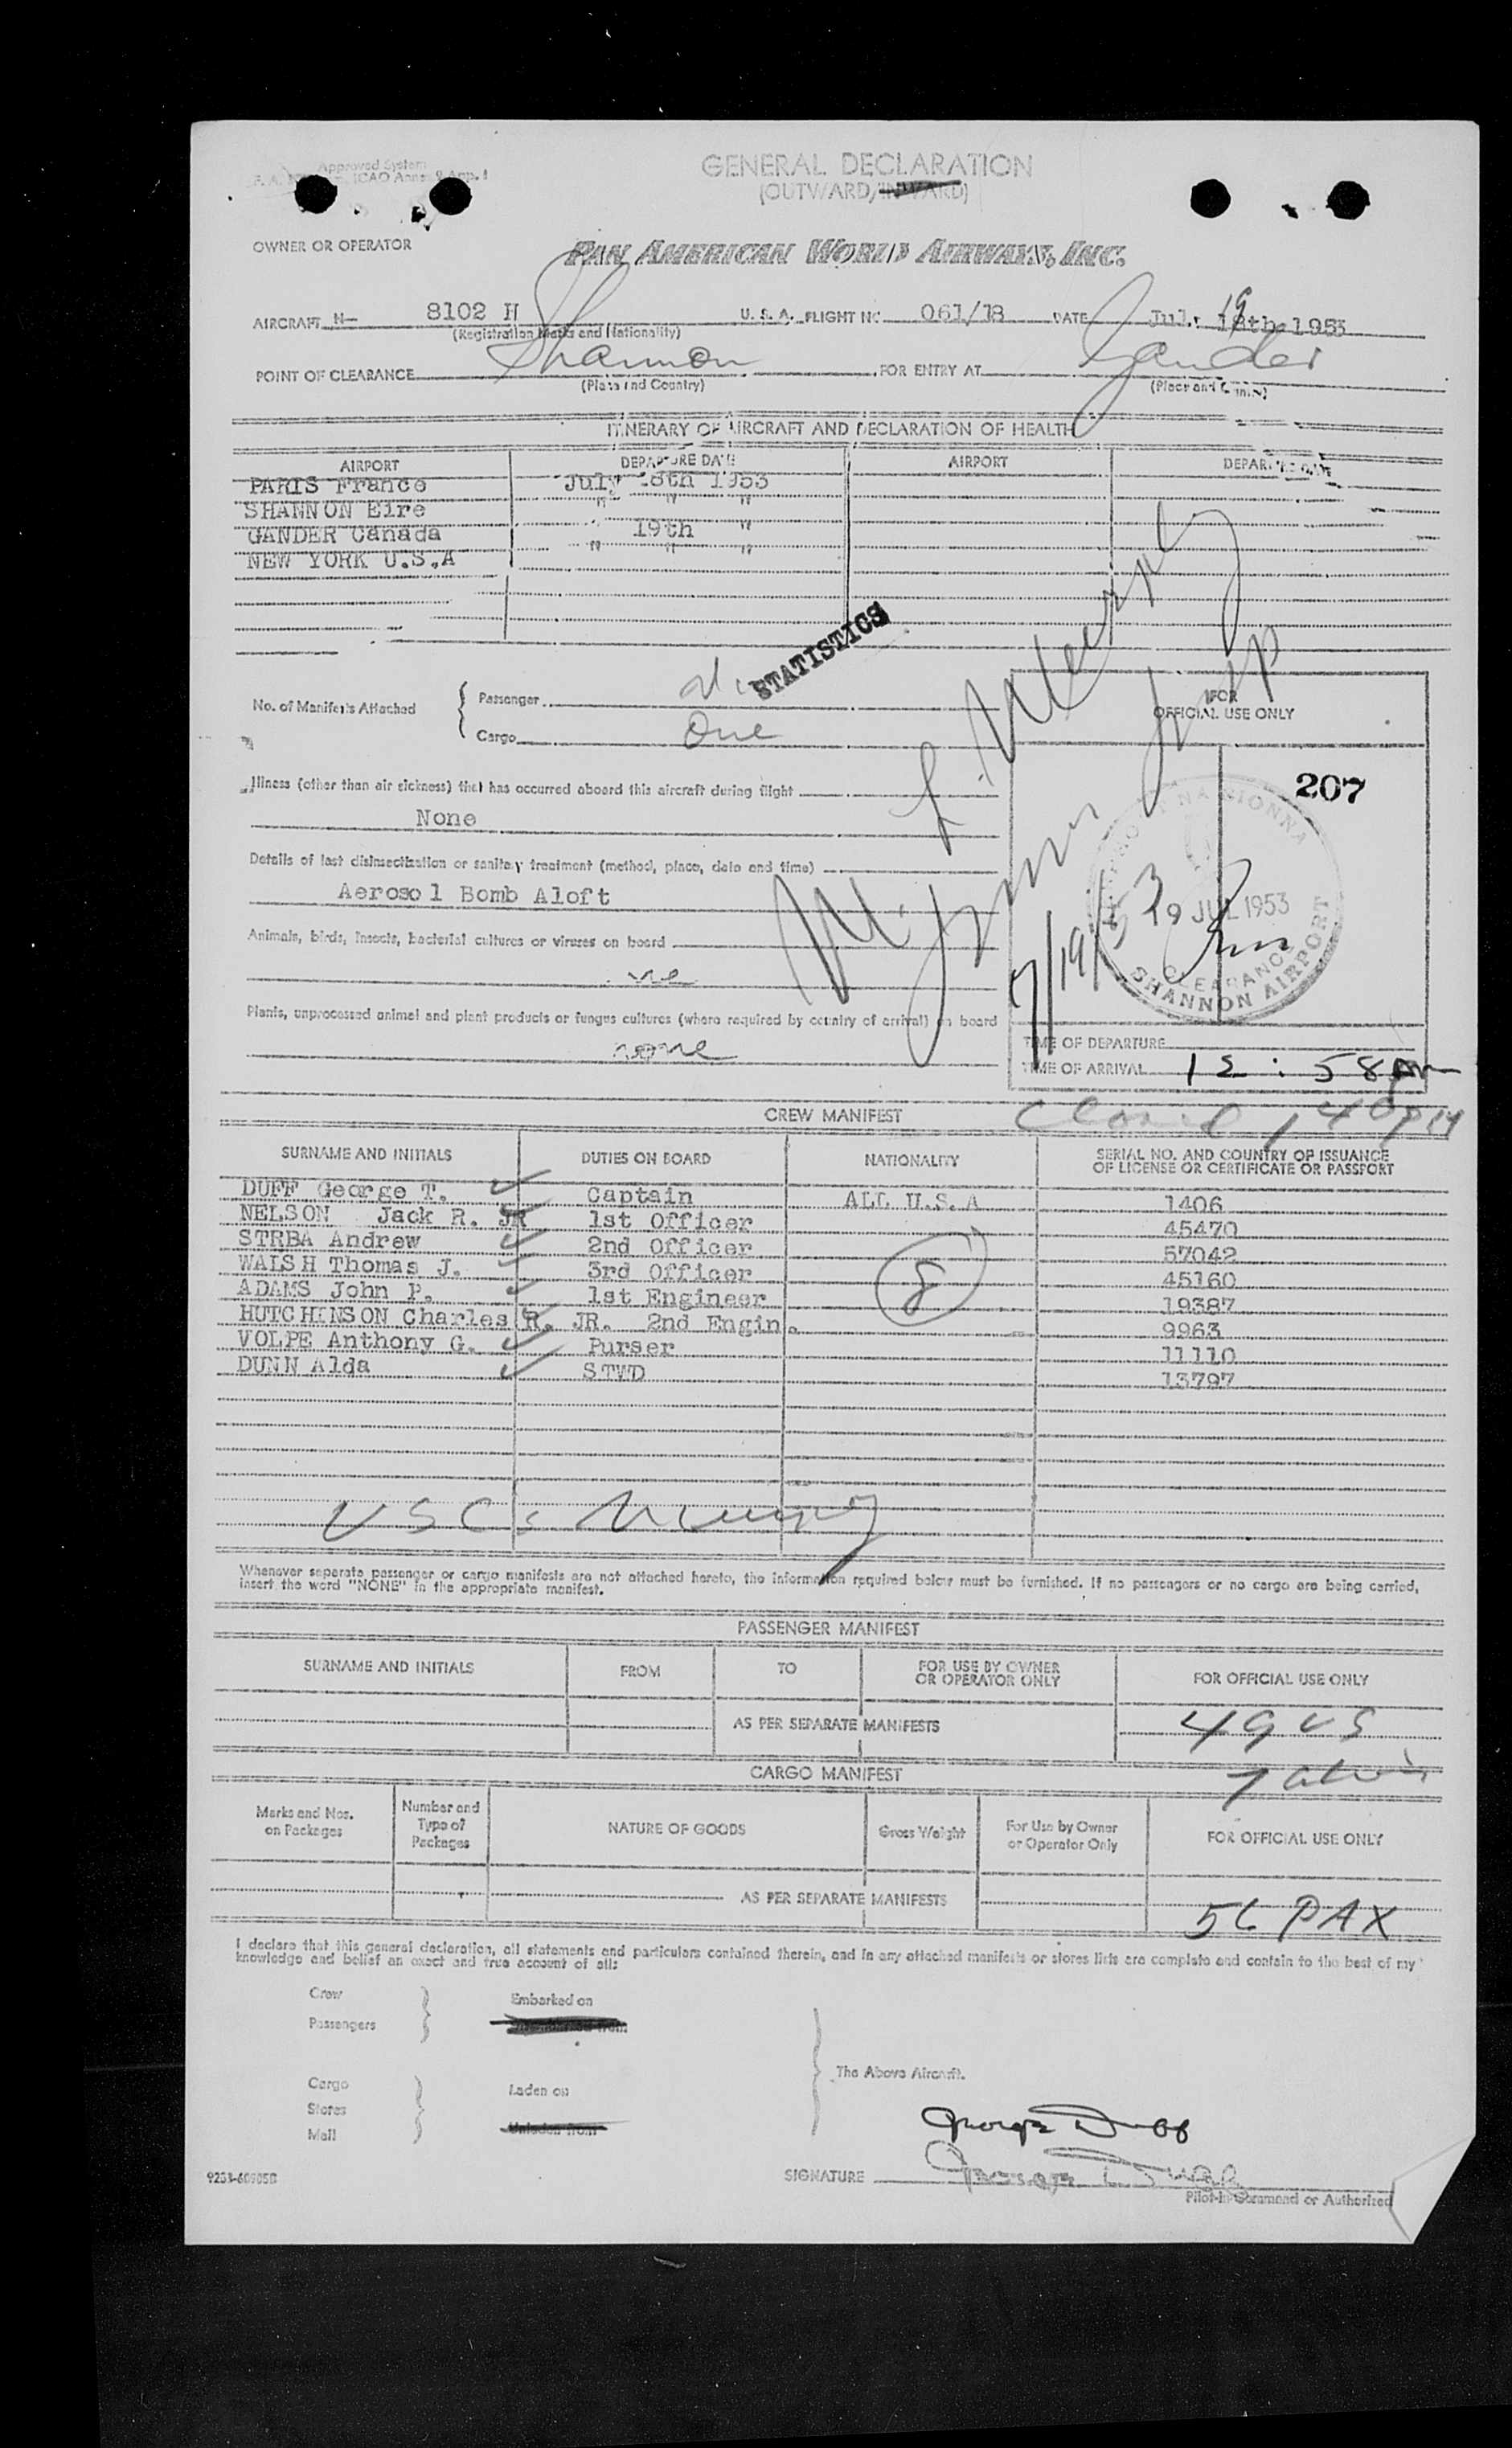 Approved System
ICAO Annex 9 App. 1
GENERAL DECLARATION
(OUTWARD/INWARD)
OWNER OR OPERATOR
PAN AMERICAN WORLD AIRWAYS, INC.
AIRCRAFT N- 8102 H U. S. A. FLIGHT NO 061/18 DATE Jul. 19 18th 1953
(Registration Marks and Nationality)
POINT OF CLEARANCE Shannon FOR ENTRY AT Gander
(Place and Country) (Place and Country)
ITINERARY OF AIRCRAFT AND DECLARATION OF HEALTH
AIRPORT DEPARTURE DATE AIRPORT DEPARTURE DATE
PARIS France July 18th 1953
SHANNON Eire " " "
GANDER Canada " 19th "
NEW YORK U.S.A " " "
STATISTICS
No. of Manifests Attached
Passenger
Cargo One
FOR
OFFICIAL USE ONLY
207
Illness (other than air sickness) that has occurred aboard this aircraft during flight
None
Details of last disinsectization or sanitary treatment (method, place, date and time)
Aerosol Bomb Aloft
Animals, birds, insects, bacterial cultures or viruses on board
Plants, unprocessed animal and plant products or fungus cultures (where required by country of arrival) on board
none
L. Murphy
7/19/53
19 JUL 1953
CLEARANCE
SHANNON AIRPORT
TIME OF DEPARTURE
TIME OF ARRIVAL 12:58 pm
CREW MANIFEST
SURNAME AND INITIALS DUTIES ON BOARD NATIONALITY SERIAL NO. AND COUNTRY OF ISSUANCE
OF LICENSE OR CERTIFICATE OR PASSPORT
DUFF George T. Captain ALL U.S.A 1406
NELSON Jack R. JR 1st Officer 45470
STRBA Andrew 2nd Officer 57042
WALSH Thomas J. 3rd Officer 45160
ADAMS John P. 1st Engineer 19387
HUTCHINSON Charles R. JR. 2nd Engin. 9963
VOLPE Anthony G. Purser 11110
DUNN Alda STWD 13797
8
USCs
Whenever separate passenger or cargo manifests are not attached hereto, the information required below must be furnished. If no passengers or no cargo are being carried,
insert the word "NONE" in the appropriate manifest.
PASSENGER MANIFEST
SURNAME AND INITIALS FROM TO FOR USE BY OWNER
OR OPERATOR ONLY FOR OFFICIAL USE ONLY
AS PER SEPARATE MANIFESTS
49 US
7
CARGO MANIFEST
Marks and Nos.
on Packages
Number and
Type of
Packages
NATURE OF GOODS
Gross Weight
For Use by Owner
or Operator Only
FOR OFFICIAL USE ONLY
AS PER SEPARATE MANIFESTS
56 PAX
I declare that this general declaration, all statements and particulars contained therein, and in any attached manifests or stores lists are complete and contain to the best of my
knowledge and belief an exact and true account of all:
Crew
Passengers
Embarked on
Cargo
Stores
Mail
Laden on
Unladen from
The Above Aircraft.
George Duff
SIGNATURE George T. Duff
Pilot-in-Command or Authorized